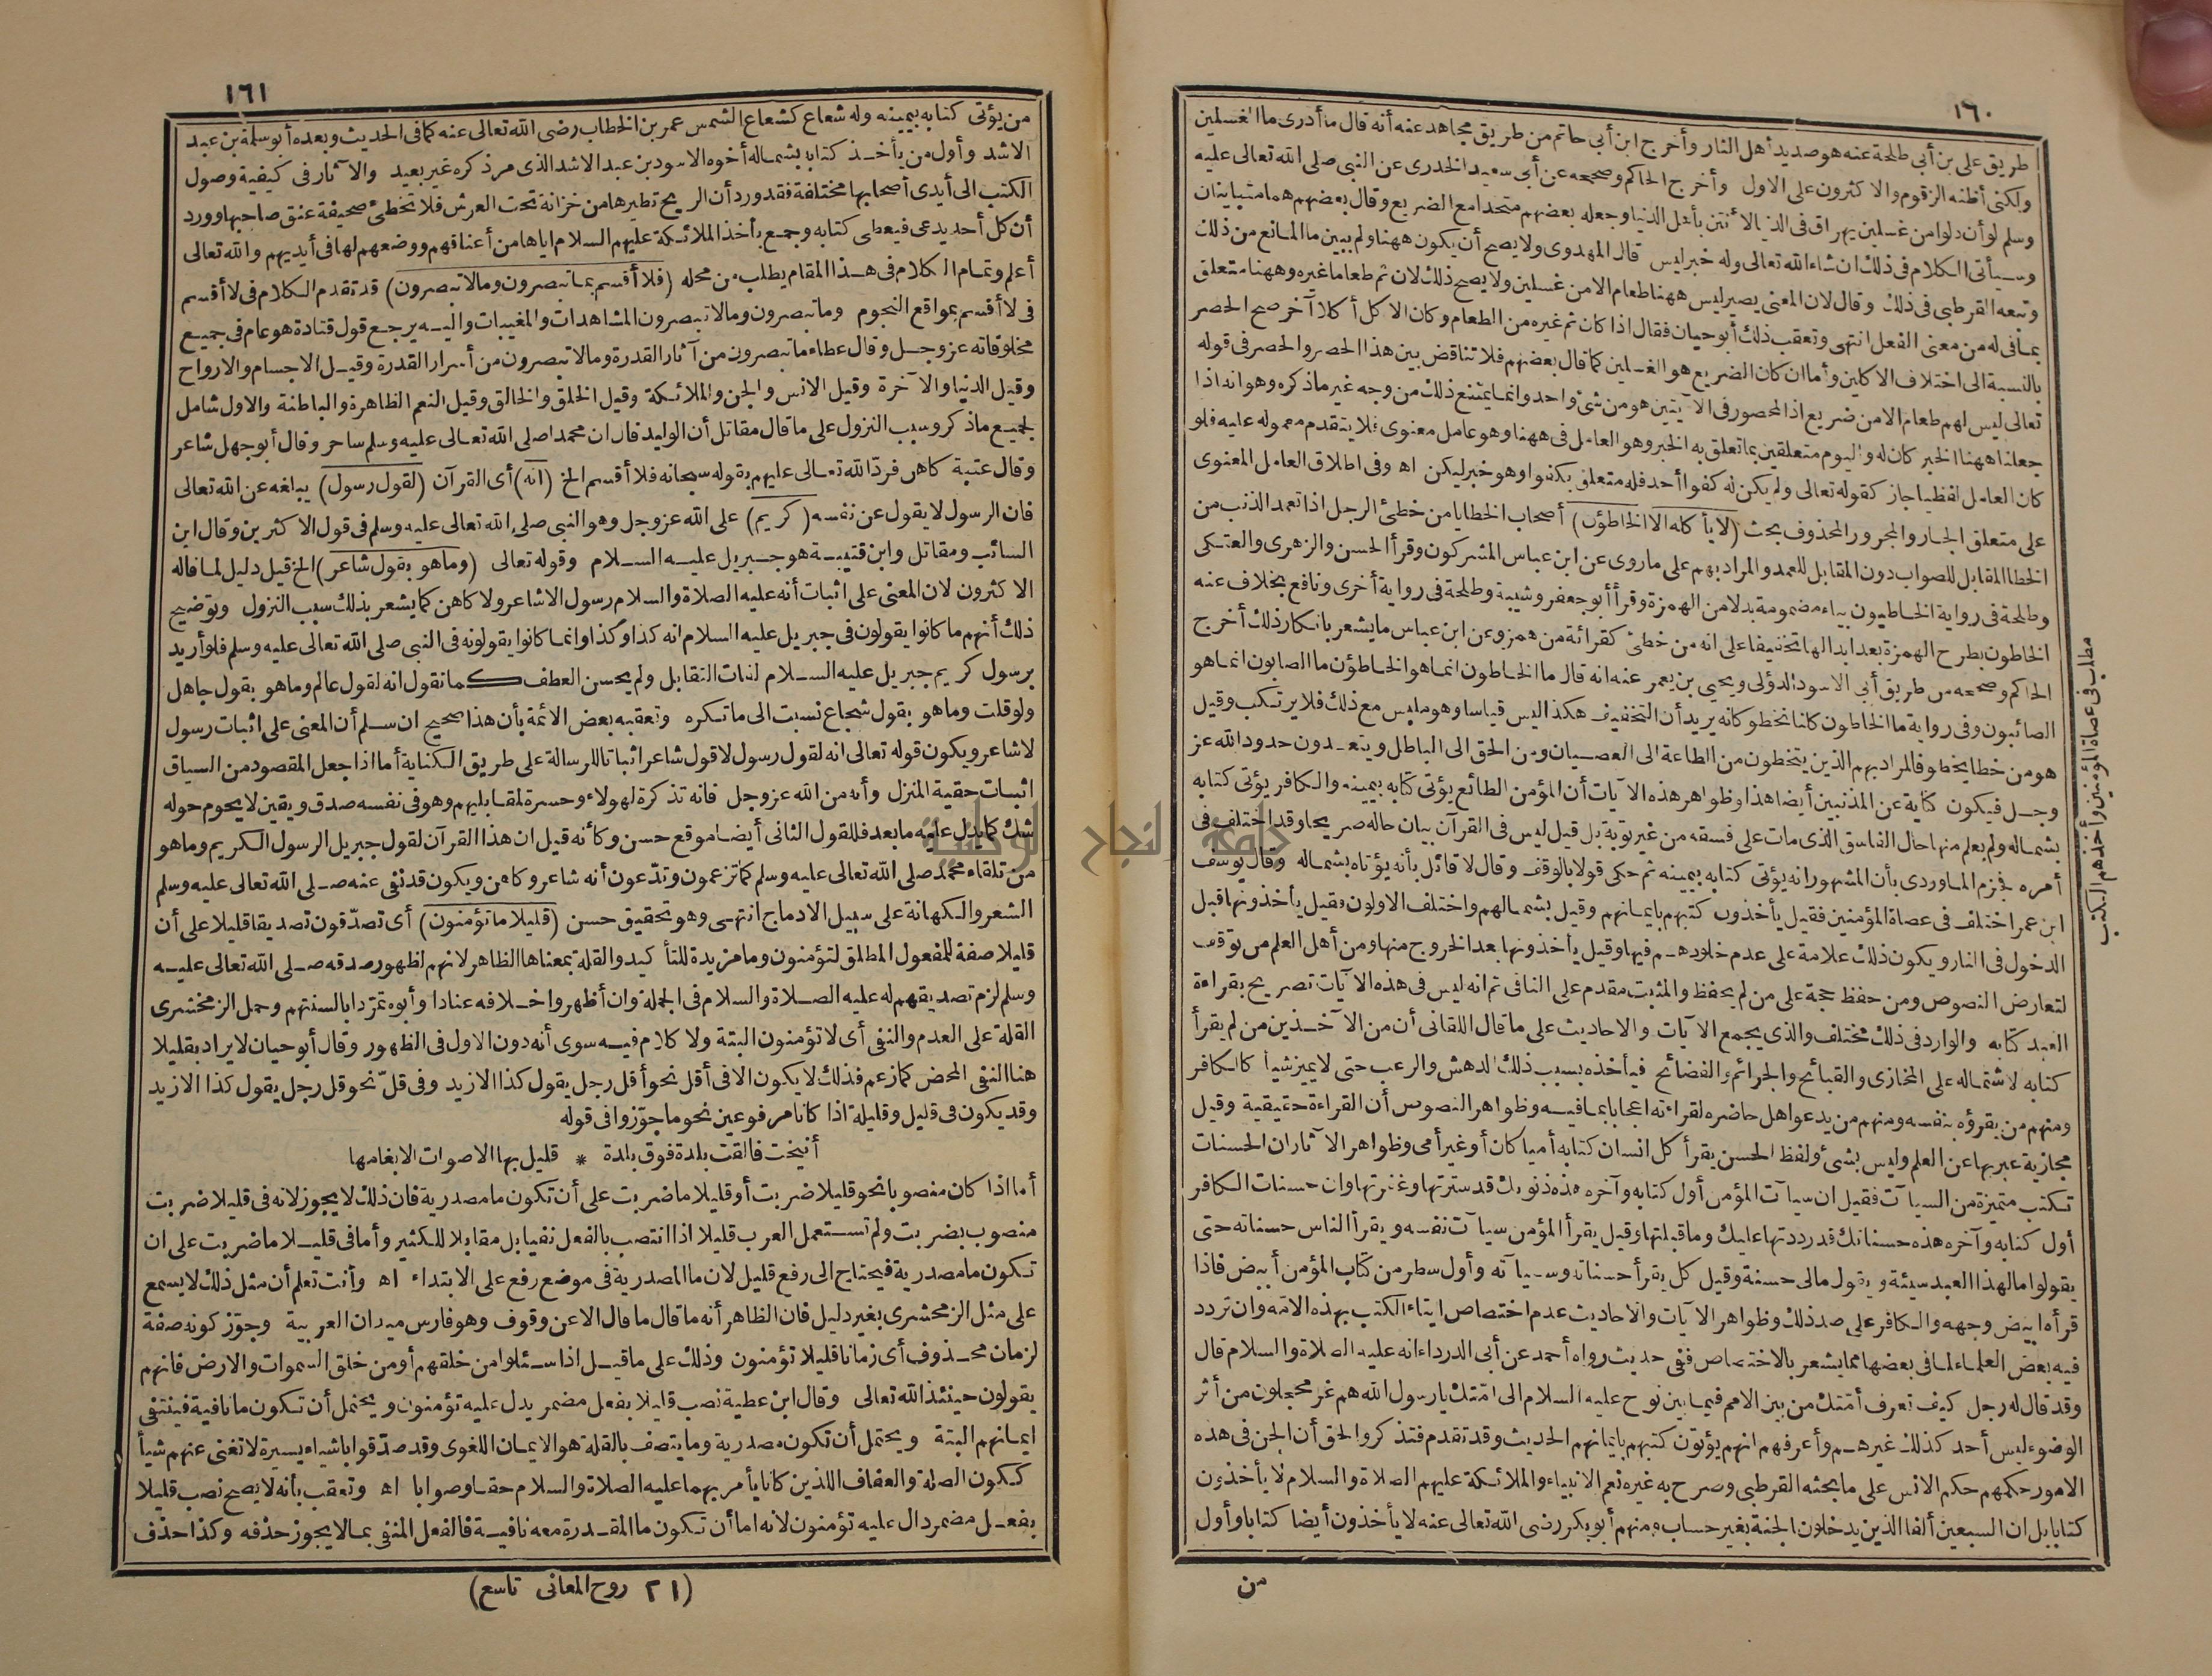 ١٦٠
طريق على بن أبي طلحة عنه هو صديد أهل النار وأخرج ابن أبي حاتم من طريق مجاهد عنه أنه قال ما أدرى ما الغسلين
ولكنى أظنه الزقوم والاكثرون على الاول وأخرج الحاكم وصححه عن أبى سعيد الخدرى عن النبى صلى الله تعالى عليه
وسلم لو أن دلوا من غسلين يهراق فى الدنيا لأنتن بأهل الدنيا وجعله بعضهم متحدا مع الضريع وقال بعضهم هما متباينان
وسيأتى الكلام فى ذلك ان شاء الله تعالى وله خبر ليس قال المهدوى ولا يصح أن يكون ههنا ولم يبين ما المانع من ذلك
وتبعه القرطبى فى ذلك وقال لان المعنى يصير ليس ههنا طعام الا من غسلين ولا يصح ذلك لان ثم طعاما غيره وههنا متعلق
بما فى له من معنى الفعل انتهى وتعقب ذلك أبو حيان فقال اذا كان ثم غيره من الطعام وكان الاكل أكلا آخر صح الحصر
بالنسبة الى اختلاف الاكلين وأما ان كان الضريع هو الغسلين كما قال بعضهم فلا تناقض بين هذا الحصر والحصر فى قوله
تعالى ليس لهم طعام الا من ضريع اذ المحصور فى الآيتين هو من شئ واحد وانما يمتنع ذلك من وجه غير ماذكره وهو انه اذا
جعلنا ههنا الخبر كان له واليوم متعلقين بما تعلق به الخبر وهو العامل فى ههنا وهو عامل معنوى فلا يتقدم معموله عليه فلو
كان العامل لفظيا جاز كقوله تعالى ولم يكن له كفوا أحد فله متعلق بكفوا وهو خبر ليكن اه وفى اطلاق العامل المعنوى
على متعلق الجار والمجرور المحذوف بحث (لا يأكله الا الخاطؤن) أصحاب الخطايا من خطئ الرجل اذا تعمد الذنب من
الخطا المقابل للصواب دون المقابل للعمد والمراد بهم على ماروى عن ابن عباس المشركون وقرأ الحسن والزهرى والعتكى
وطلحة فى رواية الخاطيون بياء مضمومة بدلا من الهمزة وقرأ أبو جعفر وشيبة وطلحة فى رواية أخرى ونافع بخلاف عنه
الخاطون بطرح الهمزة بعد ابدالها تخفيفا على انه من خطئ كقرائة من همز وعن ابن عباس ما يشعر بانكار ذلك أخرج
الحاكم وصححه من طريق أبى الاسود الدؤلى ويحيى بن يعمر عنه انه قال ما الخاطون انما هو الخاطؤن ما الصابون انما هو
الصائبون وفى رواية ما الخاطون كلنا نخطو كانه يريد أن التخفيف هكذا ليس قياسا وهو ملبس مع ذلك فلا يرتكب وقيل
هو من خطا يخطو فالمراد بهم الذين يتخطون من الطاعة الى العصيان ومن الحق الى الباطل ويتعدون حدود الله عز
وجل فيكون كناية عن المذنبين أيضا هذا وظواهر هذه الآيات أن المؤمن الطائع يؤتى كتابه بيمينه والكافر يؤتى كتابه
بشماله ولم يعلم منها حال الفاسق الذى مات على فسقه من غير توبة بل قيل ليس فى القرآن بيان حاله صريحا وقد اختلف فى
أمره فجزم الماوردى بأن المشهور انه يؤتى كتابه بيمينه ثم حكى قولا بالوقف وقال لا قائل بأنه يؤتاه بشماله وقال يوسف
ابن عمر اختلف فى عصاة المؤمنين فقيل يأخذون كتبهم بايمانهم وقيل بشمالهم واختلف الاولون فقيل يأخذونها قبل
الدخول فى النار ويكون ذلك علامة على عدم خلودهم فيها وقيل يأخذونها بعد الخروج منها ومن أهل العلم من توقف
لتعارض النصوص ومن حفظ حجة على من لم يحفظ والمثبت مقدم على النافى ثم انه ليس فى هذه الآيات تصريح بقراءة
العبد كتابه والوارد فى ذلك مختلف والذى يجمع الآيات والاحاديث على ما قال اللقانى أن من الآخذين من لم يقرأ
كتابه لاشتماله على المخازى والقبائح والجرائم والفضائح فيأخذه بسبب ذلك الدهش والرعب حتى لا يميز شيأ كالكافر
ومنهم من يقرؤه بنفسه ومنهم من يدعو أهل حاضره لقراءته اعجابا بما فيه وظواهر النصوص أن القراءة حقيقية وقيل
مجازية عبر بها عن العلم وليس بشئ ولفظ الحسن يقرأ كل انسان كتابه أميا كان أو غير أمى وظواهر الآثار ان الحسنات
تكتب متميزة من السيآت فقيل ان سيآت المؤمن أول كتابه وآخره هذه ذنوبك قد سترتها وغفرتها وان حسنات الكافر
أول كتابه وآخره هذه حسناتك قد رددتها عليك وما قبلتها وقيل يقرأ المؤمن سيآت نفسه ويقرأ الناس حسناته حتى
يقولوا ما لهذا العبد سيئة ويقول مالى حسنة وقيل كل يقرأ حسناته وسيآته وأول سطر من كتاب المؤمن أبيض فاذا
قرأه ابيض وجهه والكافر على ضد ذلك وظواهر الآيات والاحاديث عدم اختصاص ايتاء الكتب بهذه الامة وان تردد
فيه بعض العلماء لما فى بعضها مما يشعر بالاختصاص ففى حديث رواه أحمد عن أبى الدرداء انه عليه الصلاة والسلام قال
وقد قال له رجل كيف تعرف أمتك من بين الامم فيما بين نوح عليه السلام الى امتك يارسول الله هم غر محجلون من أثر
الوضوء ليس أحد كذلك غيرهم وأعرفهم انهم يؤتون كتبهم بايمانهم الحديث وقد تقدم فتذكر والحق أن الجن فى هذه
الامور حكمهم حكم الانس على ما بحثه القرطبى وصرح به غيره نعم الانبياء والملائكة عليهم الصلاة والسلام لا يأخذون
كتابا بل ان السبعين ألفا الذين يدخلون الجنة بغير حساب ومنهم أبو بكر رضى الله تعالى عنه لا يأخذون أيضا كتابا وأول
من
مطلب فى عصاة المؤمنين وأخذهم الكتب
١٦١
من يؤتى كتابه بيمينه وله شعاع كشعاع الشمس عمر بن الخطاب رضى الله تعالى عنه كما فى الحديث وبعده أبو سلمة بن عبد
الاشد وأول من يأخذ كتابه بشماله أخوه الاسود بن عبد الاشد الذى مر ذكره غير بعيد والآثار فى كيفية وصول
الكتب الى أيدى أصحابها مختلفة فقد ورد أن الريح تطيرها من خزانة تحت العرش فلا تخطئ صحيفة عنق صاحبها وورد
أن كل أحد يدعى فيعطى كتابه وجمع بأخذ الملائكة عليهم السلام اياها من أعناقهم ووضعهم لها فى أيديهم والله تعالى
أعلم وتمام الكلام فى هذا المقام يطلب من محله (فلا أقسم بما تبصرون وما لا تبصرون) قد تقدم الكلام فى لا أقسم
فى لا أقسم بمواقع النجوم وما تبصرون وما لا تبصرون المشاهدات والمغيبات واليه يرجع قول قتادة هو عام فى جميع
مخلوقاته عز وجل وقال عطاء ما تبصرون من آثار القدرة وما لا تبصرون من أسرار القدرة وقيل الاجسام والارواح
وقيل الدنيا والآخرة وقيل الانس والجن والملائكة وقيل الخلق والخالق وقيل النعم الظاهرة والباطنة والاول شامل
لجميع ماذكر وسبب النزول على ما قال مقاتل أن الوليد قال ان محمدا صلى الله تعالى عليه وسلم ساحر وقال أبو جهل شاعر
وقال عتبة كاهن فرد الله تعالى عليهم بقوله سبحانه فلا أقسم الخ (انه) أى القرآن (لقول رسول) يبلغه عن الله تعالى
فان الرسول لا يقول عن نفسه (كريم) على الله عز وجل وهو النبى صلى الله تعالى عليه وسلم فى قول الاكثرين وقال ابن
السائب ومقاتل وابن قتيبة هو جبريل عليه السلام وقوله تعالى (وما هو بقول شاعر) الخ قيل دليل لما قاله
الاكثرون لان المعنى على اثبات أنه عليه الصلاة والسلام رسول لا شاعر ولا كاهن كما يشعر بذلك سبب النزول وتوضيح
ذلك أنهم ما كانوا يقولون فى جبريل عليه السلام انه كذا وكذا وانما كانوا يقولونه فى النبى صلى الله تعالى عليه وسلم فلو أريد
برسول كريم جبريل عليه السلام لفات التقابل ولم يحسن العطف كما تقول انه لقول عالم وما هو بقول جاهل
ولو قلت وما هو بقول شجاع نسبت الى ما تكره وتعقبه بعض الائمة بأن هذا صحيح ان سلم أن المعنى على اثبات رسول
لا شاعر ويكون قوله تعالى انه لقول رسول لا قول شاعر اثباتا للرسالة على طريق الكناية أما اذا جعل المقصود من السياق
اثبات حقية المنزل وأنه من الله عز وجل فانه تذكرة لهولاء وحسرة لمقابليهم وهو فى نفسه صدق ويقين لا يحوم حوله
شك كما يدل عليه ما بعد فللقول الثانى أيضا موقع حسن وكأنه قيل ان هذا القرآن لقول جبريل الرسول الكريم وما هو
من تلقاء محمد صلى الله تعالى عليه وسلم كما تزعمون وتدّعون أنه شاعر وكاهن ويكون قد نفى عنه صلى الله تعالى عليه وسلم
الشعر والكهانة على سبيل الادماج انتهى وهو تحقيق حسن (قليلا ما تؤمنون) أى تصدّقون تصديقا قليلا على أن
قليلا صفة للمفعول المطلق لتؤمنون وما مزيدة للتأكيد والقلة بمعناها الظاهر لانهم لظهور صدقه صلى الله تعالى عليه
وسلم لزم تصديقهم له عليه الصلاة والسلام فى الجملة وان أظهروا خلافه عنادا وأبوه تمرّدا بالسنتهم وحمل الزمخشرى
القلة على العدم والنفى أى لا تؤمنون البتة ولا كلام فيه سوى أنه دون الاول فى الظهور وقال أبو حيان لا يراد بقليلا
هنا النفى المحض كما زعم فذلك لا يكون الا فى أقل نحو أقل رجل يقول كذا الا زيد وفى قلّ نحو قل رجل يقول كذا الا زيد
وقد يكون فى قليل وقليلة اذا كانا مرفوعين نحو ما جوّزوا فى قوله
أنيخت فالقت بلدة فوق بلدة * قليل بها الاصوات الا بغامها
أما اذا كان منصوبا نحو قليلا ضربت أو قليلا ما ضربت على أن تكون ما مصدرية فان ذلك لا يجوز لانه فى قليلا ضربت
منصوب بضربت ولم تستعمل العرب قليلا اذا انتصب بالفعل نفيا بل مقابلا للكثير وأما فى قليلا ما ضربت على ان
تكون ما مصدرية فيحتاج الى رفع قليل لان ما المصدرية فى موضع رفع على الابتداء اه وأنت تعلم أن مثل ذلك لا يسمع
على مثل الزمخشرى بغير دليل فان الظاهر أنه ما قال ما قال الا عن وقوف وهو فارس ميدان العربية وجوّز كونه صفة
لزمان محذوف أى زمانا قليلا تؤمنون وذلك على ما قيل اذا سئلوا من خلقهم أو من خلق السموات والارض فانهم
يقولون حينئذ الله تعالى وقال ابن عطية نصب قليلا بفعل مضمر يدل عليه تؤمنون ويحتمل أن تكون ما نافية فينتفى
ايمانهم البتة ويحتمل أن تكون مصدرية وما يتصف بالقلة هو الايمان اللغوى وقد صدّقوا باشياء يسيرة لا تغنى عنهم شيأ
ككون الصلة والعفاف اللذين كانا يأمر بهما عليه الصلاة والسلام حقا وصوابا اه وتعقب بأنه لا يصح نصب قليلا
بفعل مضمر دال عليه تؤمنون لانه اما أن تكون ما المقدرة معه نافية فالفعل المنفى بما لا يجوز حذفه وكذا حذف
(٢١ روح المعانى تاسع)